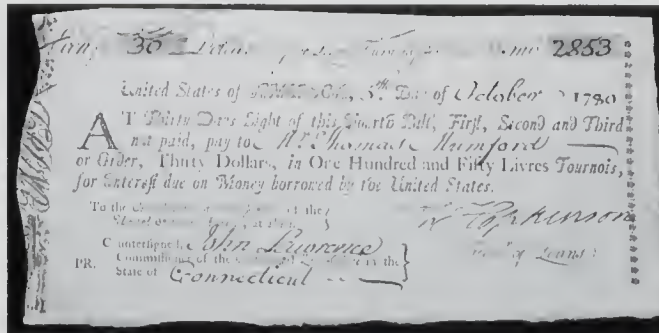 30 2853
United States of 5th Day of October 1780
AT Thirty Days Sight of this Fourth Bill, First, Second and Third
not paid, pay to Mr. Thomas Mumford
or Order, Thirty Dollars, in One Hundred and Fifty Livres Tournois,
for Interest due on Money borrowed by the United States.
To the the
F Hopkinson
Countersigned, John Lawrence
of Loans
PR. Commissioner of the in the
State of Connecticut